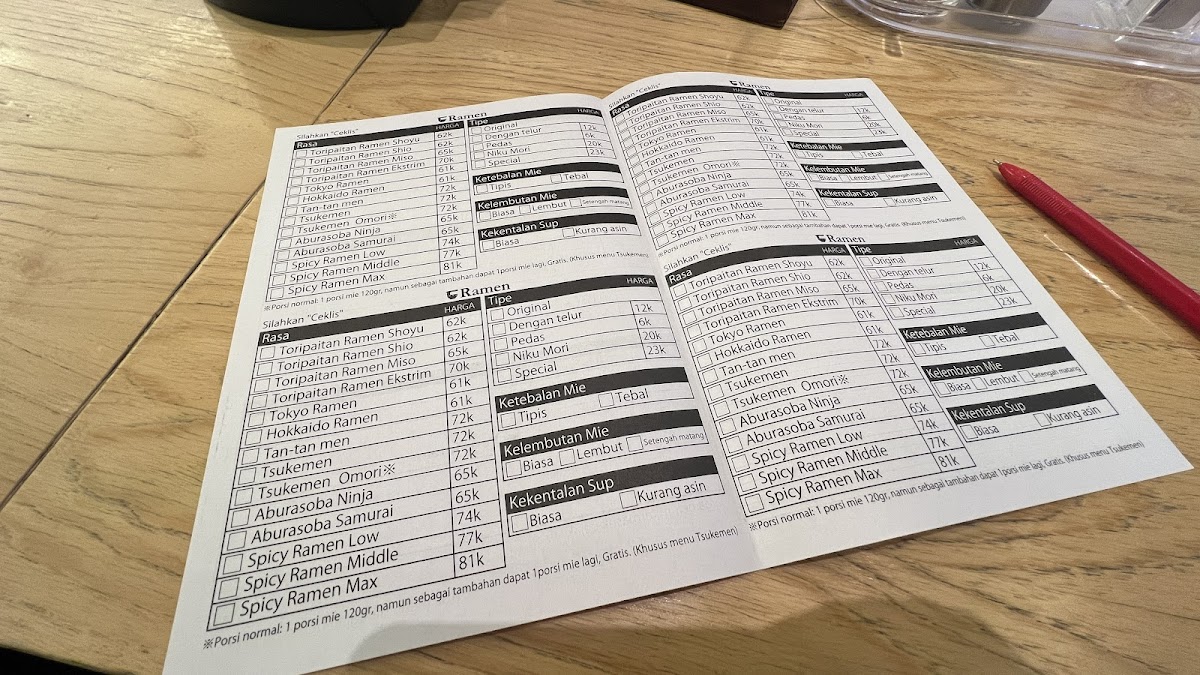 Ramen
Silahkan "Ceklis"
Rasa HARGA
Toripaitan Ramen Shoyu 62k
Toripaitan Ramen Shio 62k
Toripaitan Ramen Miso 65k
Toripaitan Ramen Ekstrim 70k
Tokyo Ramen 61k
Hokkaido Ramen 61k
Tan-tan men 72k
Tsukemen 72k
Tsukemen Omori※ 72k
Aburasoba Ninja 65k
Aburasoba Samurai 65k
Spicy Ramen Low 74k
Spicy Ramen Middle 77k
Spicy Ramen Max 81k
Tipe HARGA
Original
Dengan telur 12k
Pedas 6k
Niku Mori 20k
Special 23k
Ketebalan Mie
Tipis Tebal
Kelembutan Mie
Biasa Lembut Setengah matang
Kekentalan Sup
Biasa Kurang asin
※Porsi normal: 1 porsi mie 120gr, namun sebagai tambahan dapat 1porsi mie lagi, Gratis. (Khusus menu Tsukemen)
Ramen
Silahkan "Ceklis"
Rasa HARGA
Toripaitan Ramen Shoyu 62k
Toripaitan Ramen Shio 62k
Toripaitan Ramen Miso 65k
Toripaitan Ramen Ekstrim 70k
Tokyo Ramen 61k
Hokkaido Ramen 61k
Tan-tan men 72k
Tsukemen 72k
Tsukemen Omori※ 72k
Aburasoba Ninja 65k
Aburasoba Samurai 65k
Spicy Ramen Low 74k
Spicy Ramen Middle 77k
Spicy Ramen Max 81k
Tipe HARGA
Original
Dengan telur 12k
Pedas 6k
Niku Mori 20k
Special 23k
Ketebalan Mie
Tipis Tebal
Kelembutan Mie
Biasa Lembut Setengah matang
Kekentalan Sup
Biasa Kurang asin
※Porsi normal: 1 porsi mie 120gr, namun sebagai tambahan dapat 1porsi mie lagi, Gratis. (Khusus menu Tsukemen)
Ramen
Silahkan "Ceklis"
Rasa HARGA
Toripaitan Ramen Shoyu 62k
Toripaitan Ramen Shio 62k
Toripaitan Ramen Miso 65k
Toripaitan Ramen Ekstrim 70k
Tokyo Ramen 61k
Hokkaido Ramen 61k
Tan-tan men 72k
Tsukemen 72k
Tsukemen Omori※ 72k
Aburasoba Ninja 65k
Aburasoba Samurai 65k
Spicy Ramen Low 74k
Spicy Ramen Middle 77k
Spicy Ramen Max 81k
Tipe HARGA
Original
Dengan telur 12k
Pedas 6k
Niku Mori 20k
Special 23k
Ketebalan Mie
Tipis Tebal
Kelembutan Mie
Biasa Lembut Setengah matang
Kekentalan Sup
Biasa Kurang asin
※Porsi normal: 1 porsi mie 120gr, namun sebagai tambahan dapat 1porsi mie lagi, Gratis. (Khusus menu Tsukemen)
Ramen
Silahkan "Ceklis"
Rasa HARGA
Toripaitan Ramen Shoyu 62k
Toripaitan Ramen Shio 62k
Toripaitan Ramen Miso 65k
Toripaitan Ramen Ekstrim 70k
Tokyo Ramen 61k
Hokkaido Ramen 61k
Tan-tan men 72k
Tsukemen 72k
Tsukemen Omori※ 72k
Aburasoba Ninja 65k
Aburasoba Samurai 65k
Spicy Ramen Low 74k
Spicy Ramen Middle 77k
Spicy Ramen Max 81k
Tipe HARGA
Original
Dengan telur 12k
Pedas 6k
Niku Mori 20k
Special 23k
Ketebalan Mie
Tipis Tebal
Kelembutan Mie
Biasa Lembut Setengah matang
Kekentalan Sup
Biasa Kurang asin
※Porsi normal: 1 porsi mie 120gr, namun sebagai tambahan dapat 1porsi mie lagi, Gratis. (Khusus menu Tsukemen)